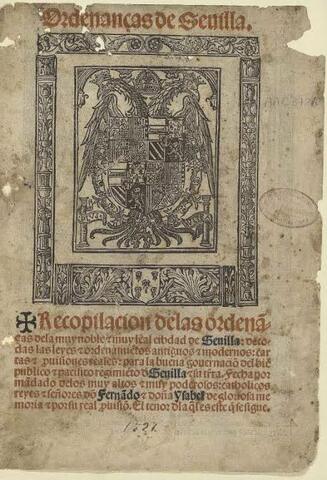 Ordenanças de Seuilla.
✠ Recopilacion de las ordenā-
ças dela muy noble & muy leal cibdad de Seuilla: de to-
das las leyes & ordenamiētos antiguos & modernos: car-
tas & puisiones reales: para la buena gouernaciō del biē
publico & pacifico regimiēto de Seuilla & su trra. Fecha por
mādado delos muy altos & muy poderosos: catholicos
reyes & señores dō Fernādo & doña Ysabel de gloriosa me
moria & por su real puisiō. El tenor dla q̄l es este q̄ se sigue.
1527